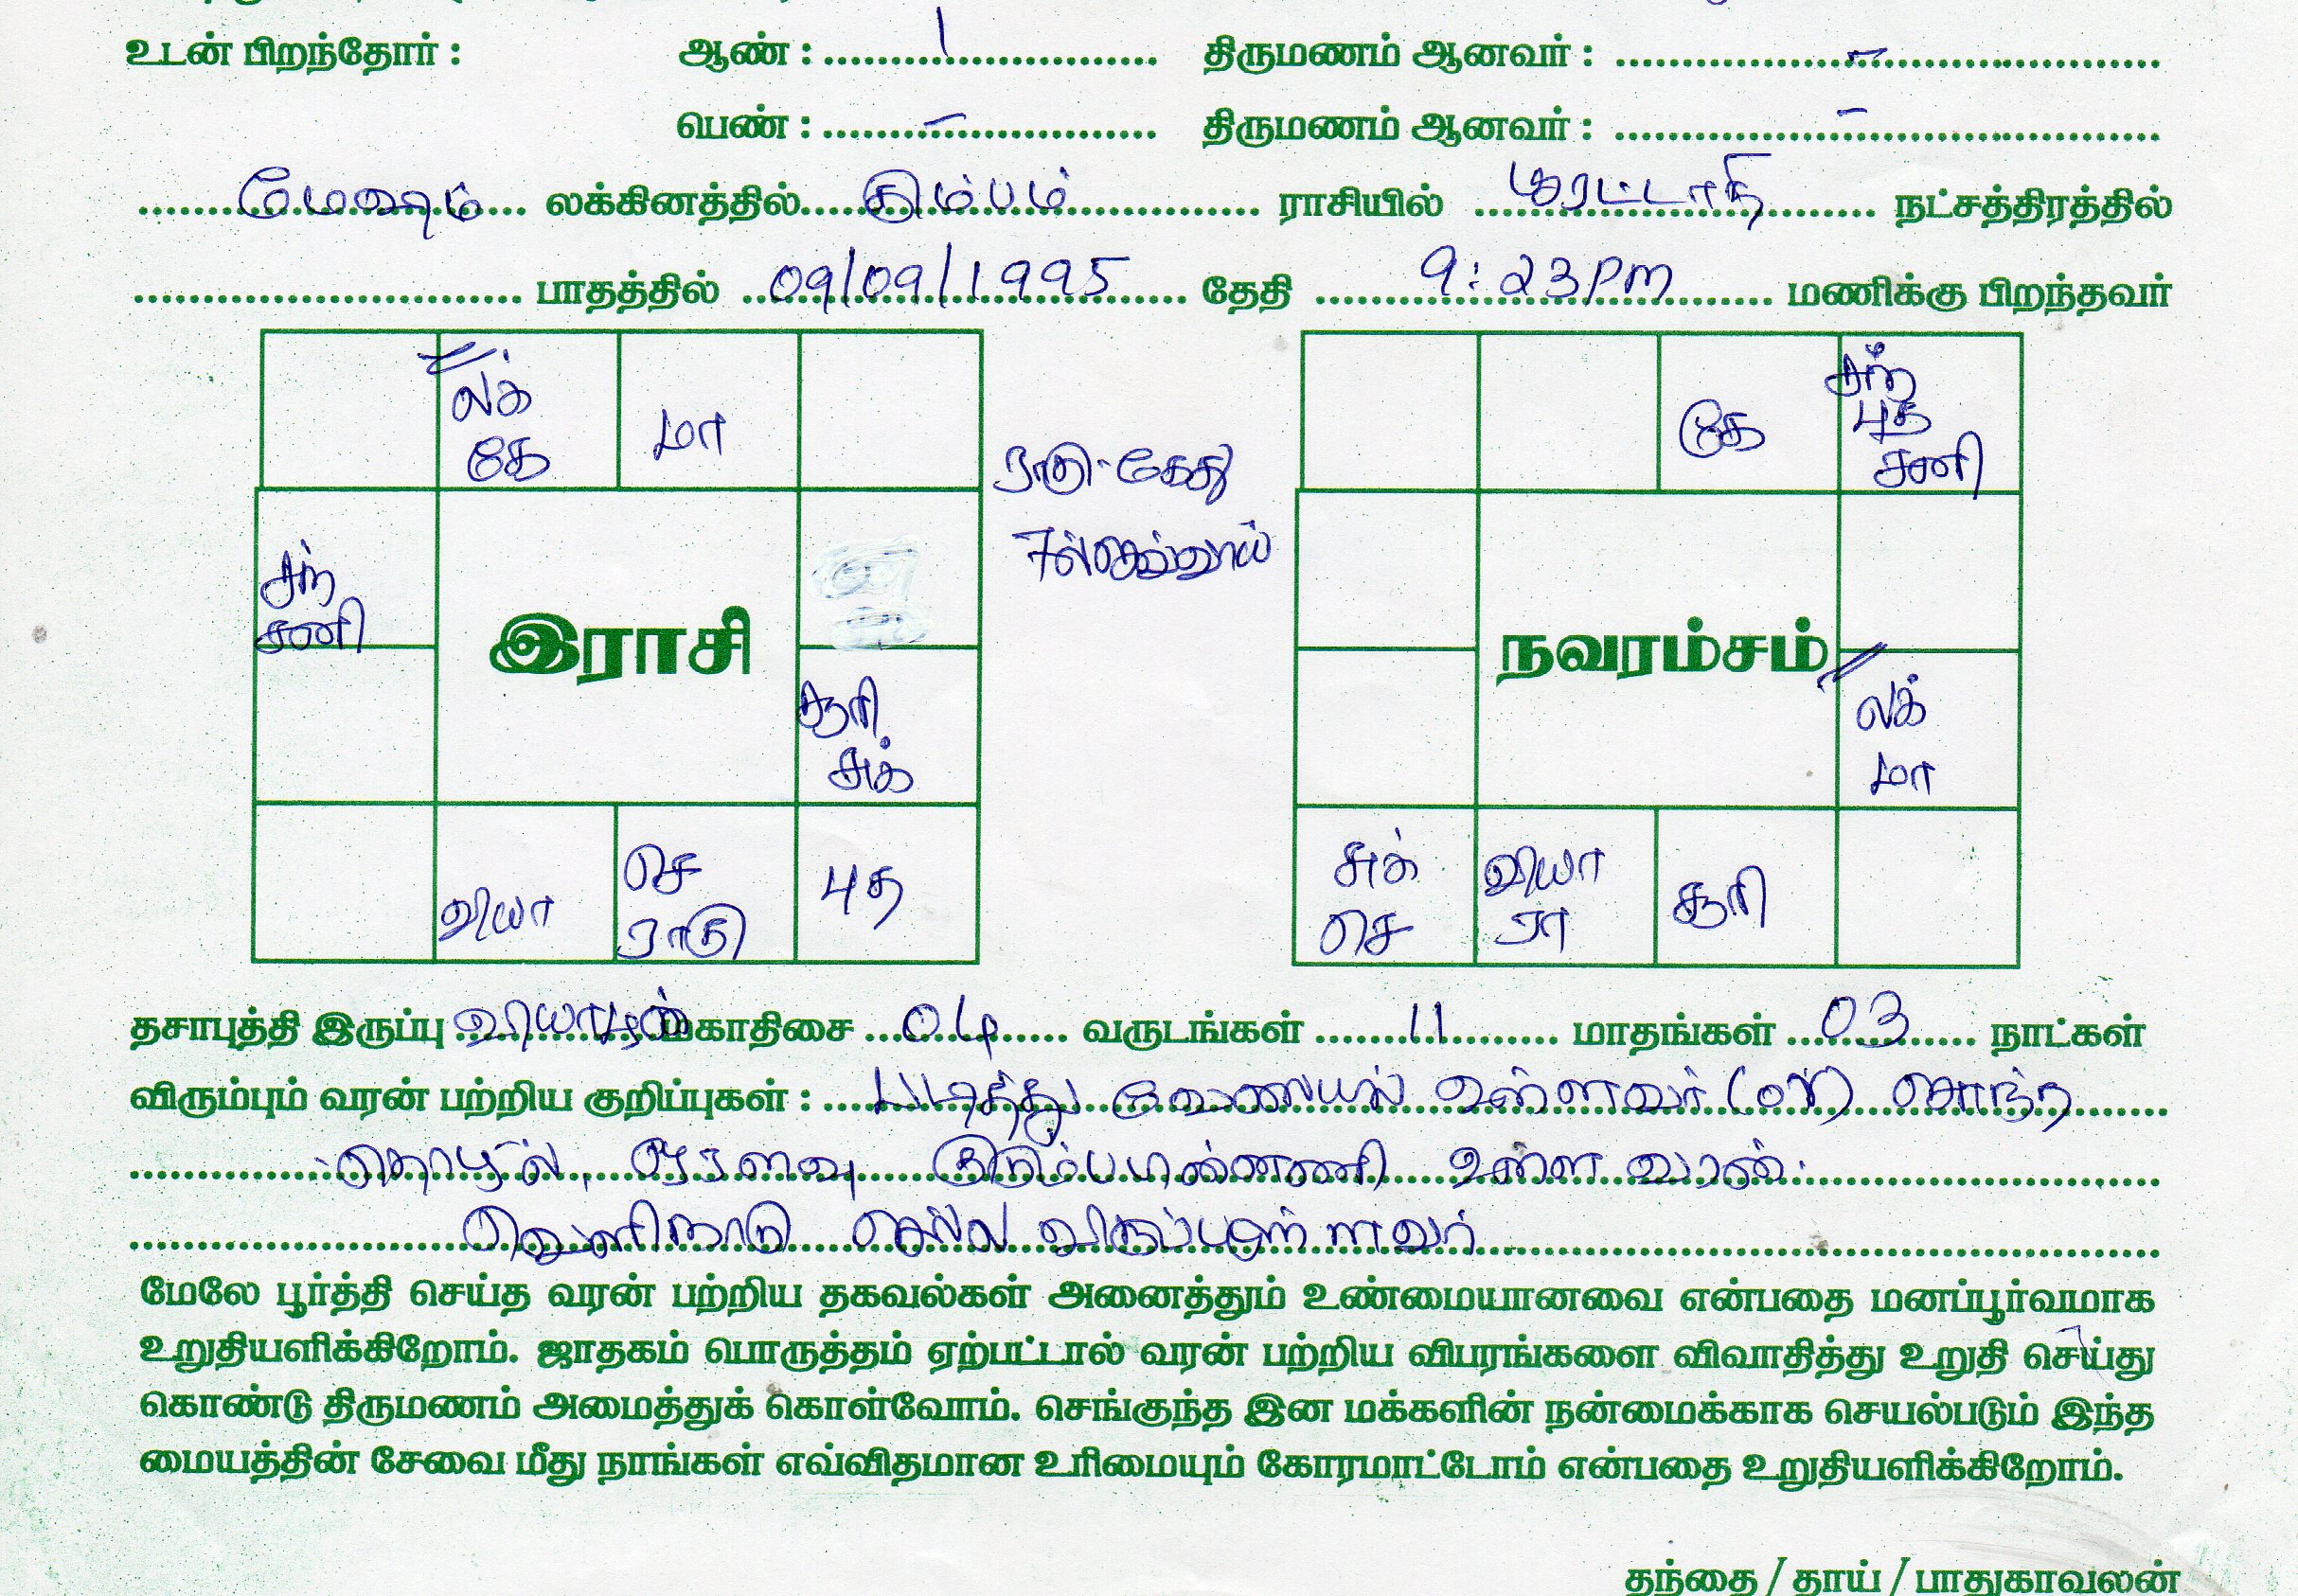 உடன் பிறந்தோர் : ஆண் : 1 திருமணம் ஆனவர் : -
பெண் : - திருமணம் ஆனவர் : -
மேஷம் லக்கினத்தில் கும்பம் ராசியில் பூரட்டாதி நட்சத்திரத்தில்
பாதத்தில் 09/09/1995 தேதி 9:23PM மணிக்கு பிறந்தவர்
லக் மா சந்
கே கே புத
சனி
ராகு-கேது
7ல் செவ்வாய்
சந்
சனி
இராசி நவரம்சம்
சூரி லக்
சுக் மா
வியா செ புத சுக் வியா சூரி
ராகு செ ரா
தசாபுத்தி இருப்பு வியாழன் மகாதிசை 04 வருடங்கள் 11 மாதங்கள் 03 நாட்கள்
விரும்பும் வரன் பற்றிய குறிப்புகள் : படித்து வேலையில் உள்ளவர் (or) சொந்த
தொழில், ஓரளவு குடும்பபின்னணி உள்ள வரன்.
வெளிநாடு செல்ல விருப்பமுள்ளவர்
மேலே பூர்த்தி செய்த வரன் பற்றிய தகவல்கள் அனைத்தும் உண்மையானவை என்பதை மனப்பூர்வமாக
உறுதியளிக்கிறோம். ஜாதகம் பொருத்தம் ஏற்பட்டால் வரன் பற்றிய விபரங்களை விவாதித்து உறுதி செய்து
கொண்டு திருமணம் அமைத்துக் கொள்வோம். செங்குந்த இன மக்களின் நன்மைக்காக செயல்படும் இந்த
மையத்தின் சேவை மீது நாங்கள் எவ்விதமான உரிமையும் கோரமாட்டோம் என்பதை உறுதியளிக்கிறோம்.
தந்தை / தாய் / பாதுகாவலன்